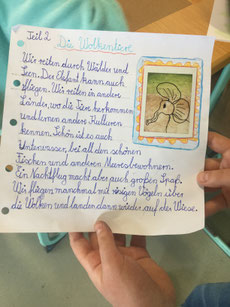 Teil 2
Die Wolkentiere
Wir reiten durch Wälder und
Seen. Der Elefant kann auch
fliegen. Wir reiten in andere
Länder, wo die Tiere herkommen
und lernen andere Kulturen
kennen. Schön ist es auch
Unterwasser, bei all den schönen
Fischen und anderen Meeresbewohnern.
Ein Nachtflug macht aber auch großen Spaß.
Wir fliegen manchmal mit riesigen Vögeln über
die Wolken und landen dann wieder auf der Wiese.